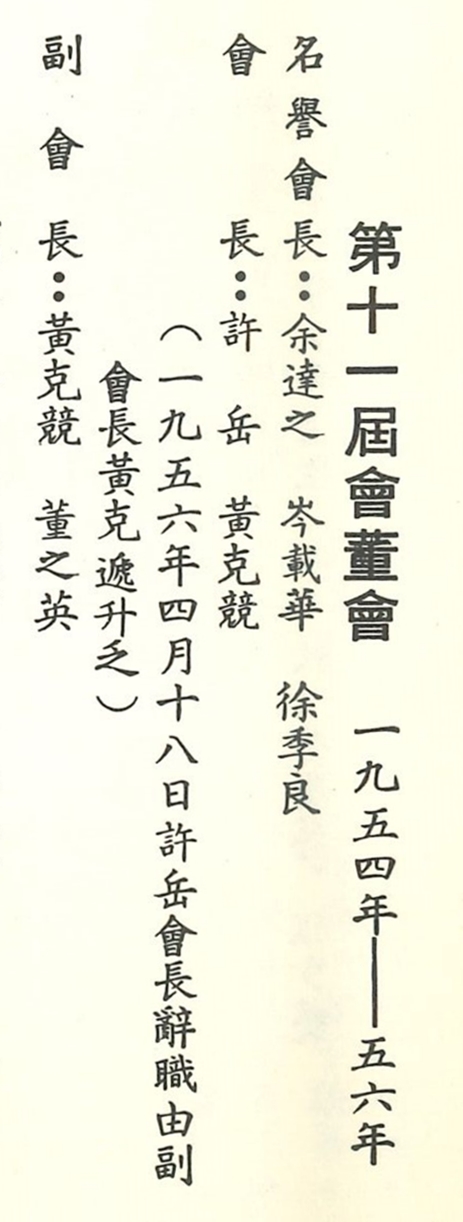 第十一屆會董會　一九五四年——五六年
名譽會長：余達之　岑載華　徐季良
會　　長：許　岳　黃克競
（一九五六年四月十八日許岳會長辭職由副
會長黃克遞升乏）
副 會 長：黃克競　董之英